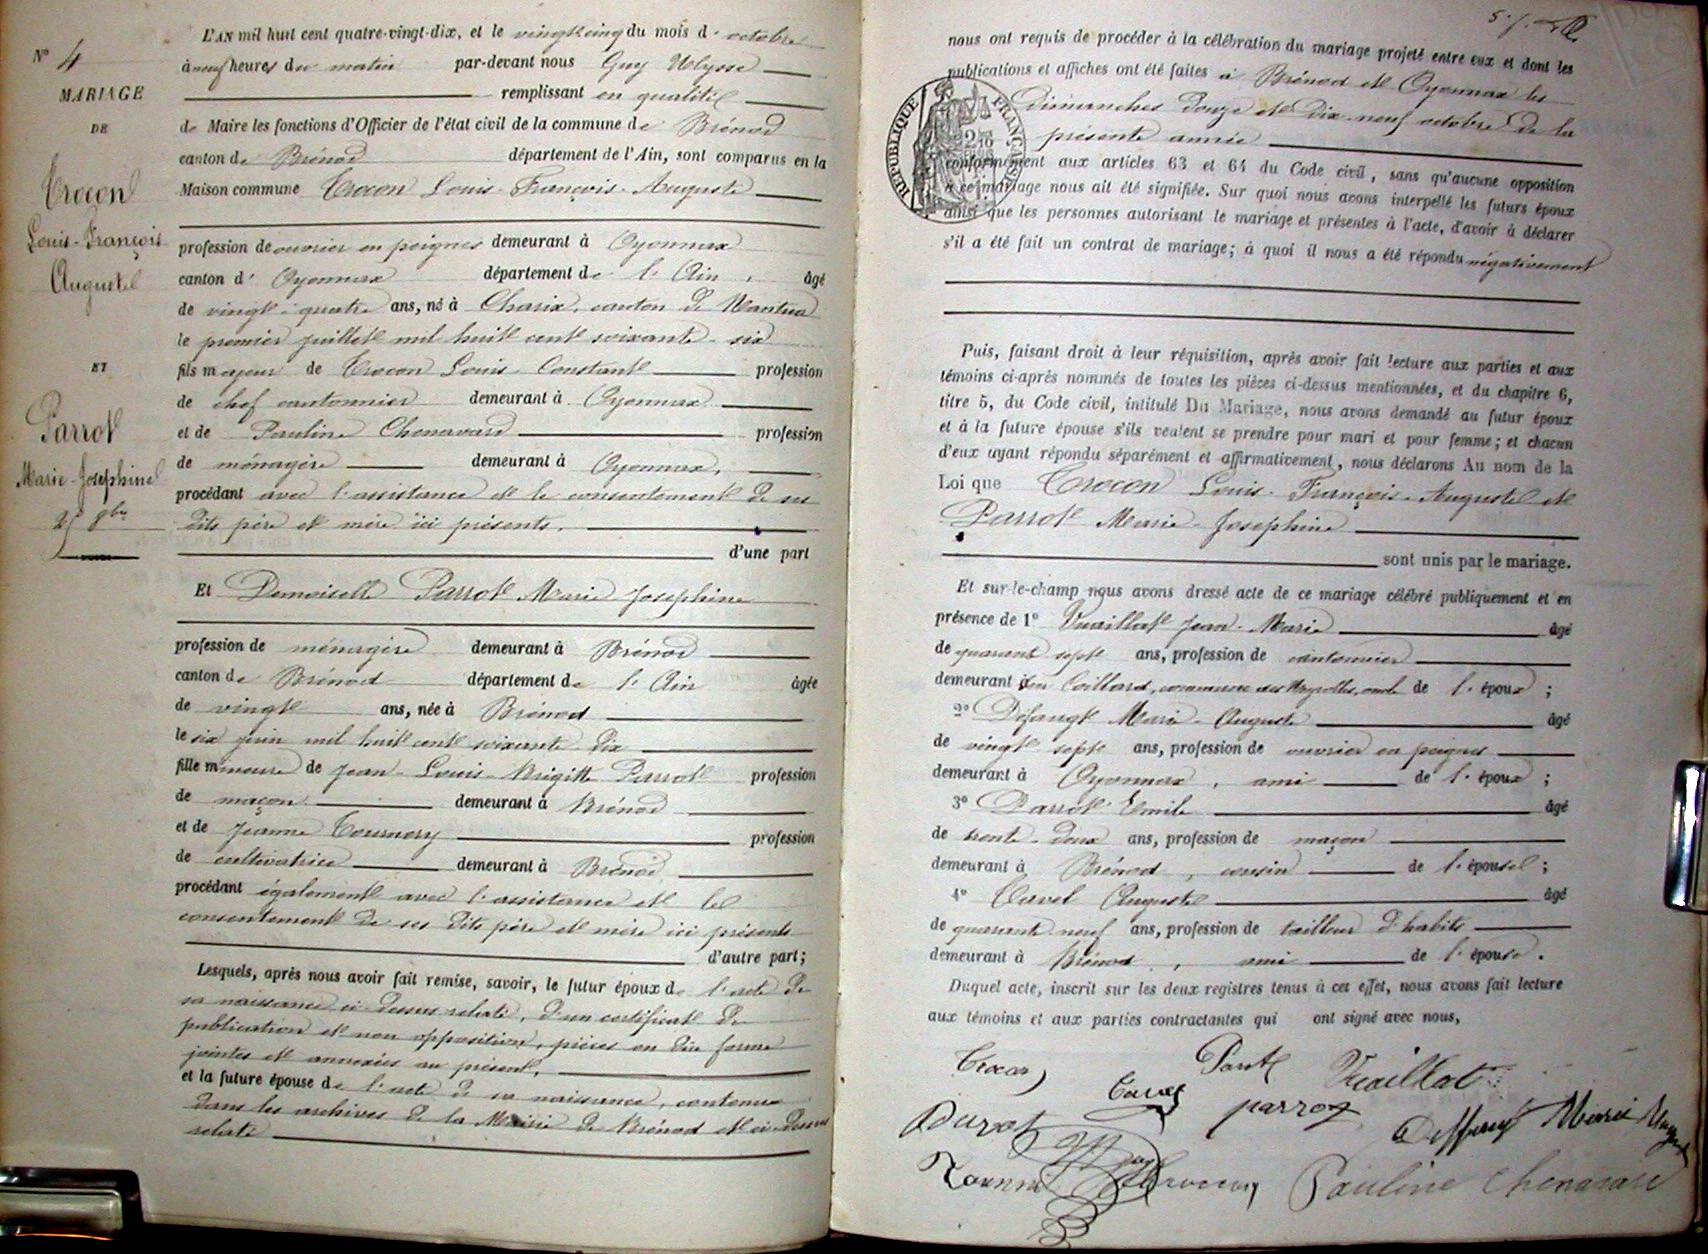 Nº 4
MARIAGE
DE
Crocon
Louis-François
Auguste
ET
Parrot
Marie-Josephine
25 8bre
L'AN mil huit cent quatre-vingt-dix, et le vingt cinq du mois d'octobre
à neuf heures du matin par-devant nous Guy Ulysse
remplissant en qualité
de Maire les fonctions d'Officier de l'état civil de la commune de Brénod
canton de Brénod département de l'Ain, sont comparus en la
Maison commune Crocon Louis-François-Auguste
profession de ouvrier en peignes demeurant à Oyonnax
canton d'Oyonnax département de l'Ain, âgé
de vingt-quatre ans, né à Charix, canton de Nantua
le premier juillet mil huit cent soixante-six
fils majeur de Crocon Louis Constant profession
de chef cantonnier demeurant à Oyonnax
et de Pauline Chenavard profession
de ménagère demeurant à Oyonnax,
procédant avec l'assistance et le consentement de ses
dits père et mère ici présents.
d'une part
Et Demoiselle Parrot Marie Josephine
profession de ménagère demeurant à Brénod
canton de Brénod département de l'Ain âgée
de vingt ans, née à Brénod
le six juin mil huit cent soixante-dix
fille mineure de Jean-Louis-Brigitte Parrot profession
de maçon demeurant à Brénod
et de Jeanne Tournery profession
de cultivatrice demeurant à Brénod
procédant également avec l'assistance et le
consentement de ses dits père et mère ici présents
d'autre part;
Lesquels, après nous avoir fait remise, savoir, le futur époux de l'acte de
sa naissance ci-dessus relaté, d'un certificat de
publication et non opposition, pièces en due forme
jointes et annexées au présent,
et la future épouse de l'acte de sa naissance, contenue
dans les archives de la Mairie de Brénod et ci-dessus
relaté
nous ont requis de procéder à la célébration du mariage projeté entre eux et dont les
publications et affiches ont été faites à Brénod et Oyonnax les
Dimanches douze et dix-neuf octobre de la
présente année
REPUBLIQUE FRANÇAISE
conformément aux articles 63 et 64 du Code civil, sans qu'aucune opposition
à ce mariage nous ait été signifiée. Sur quoi nous avons interpellé les futurs époux
ainsi que les personnes autorisant le mariage et présentes à l'acte, d'avoir à déclarer
s'il a été fait un contrat de mariage; à quoi il nous a été répondu négativement
Puis, faisant droit à leur réquisition, après avoir fait lecture aux parties et aux
témoins ci-après nommés de toutes les pièces ci-dessus mentionnées, et du chapitre 6,
titre 5, du Code civil, intitulé Du Mariage, nous avons demandé au futur époux
et à la future épouse s'ils veulent se prendre pour mari et pour femme; et chacun
d'eux ayant répondu séparément et affirmativement, nous déclarons Au nom de la
Loi que Crocon Louis-François-Auguste et
Parrot Marie-Josephine
sont unis par le mariage.
Et sur-le-champ nous avons dressé acte de ce mariage célébré publiquement et en
présence de 1º Vuaillat Jean-Marie âgé
de quarante sept ans, profession de cantonnier
demeurant à Coillard, commune des Neyrolles, oncle de l'époux;
2º Défangt Marie-Auguste âgé
de vingt sept ans, profession de ouvrier en peignes
demeurant à Oyonnax, ami de l'époux;
3º Parrot Emile âgé
de trente-deux ans, profession de maçon
demeurant à Brénod, cousin de l'épouse;
4º Cavet Auguste âgé
de quarante neuf ans, profession de tailleur d'habits
demeurant à Brénod, ami de l'épouse.
Duquel acte, inscrit sur les deux registres tenus à cet effet, nous avons fait lecture
aux témoins et aux parties contractantes qui ont signé avec nous,
Crocon Parrot Vuaillat
Cavet parrot
Marie
Pauline Chenavard